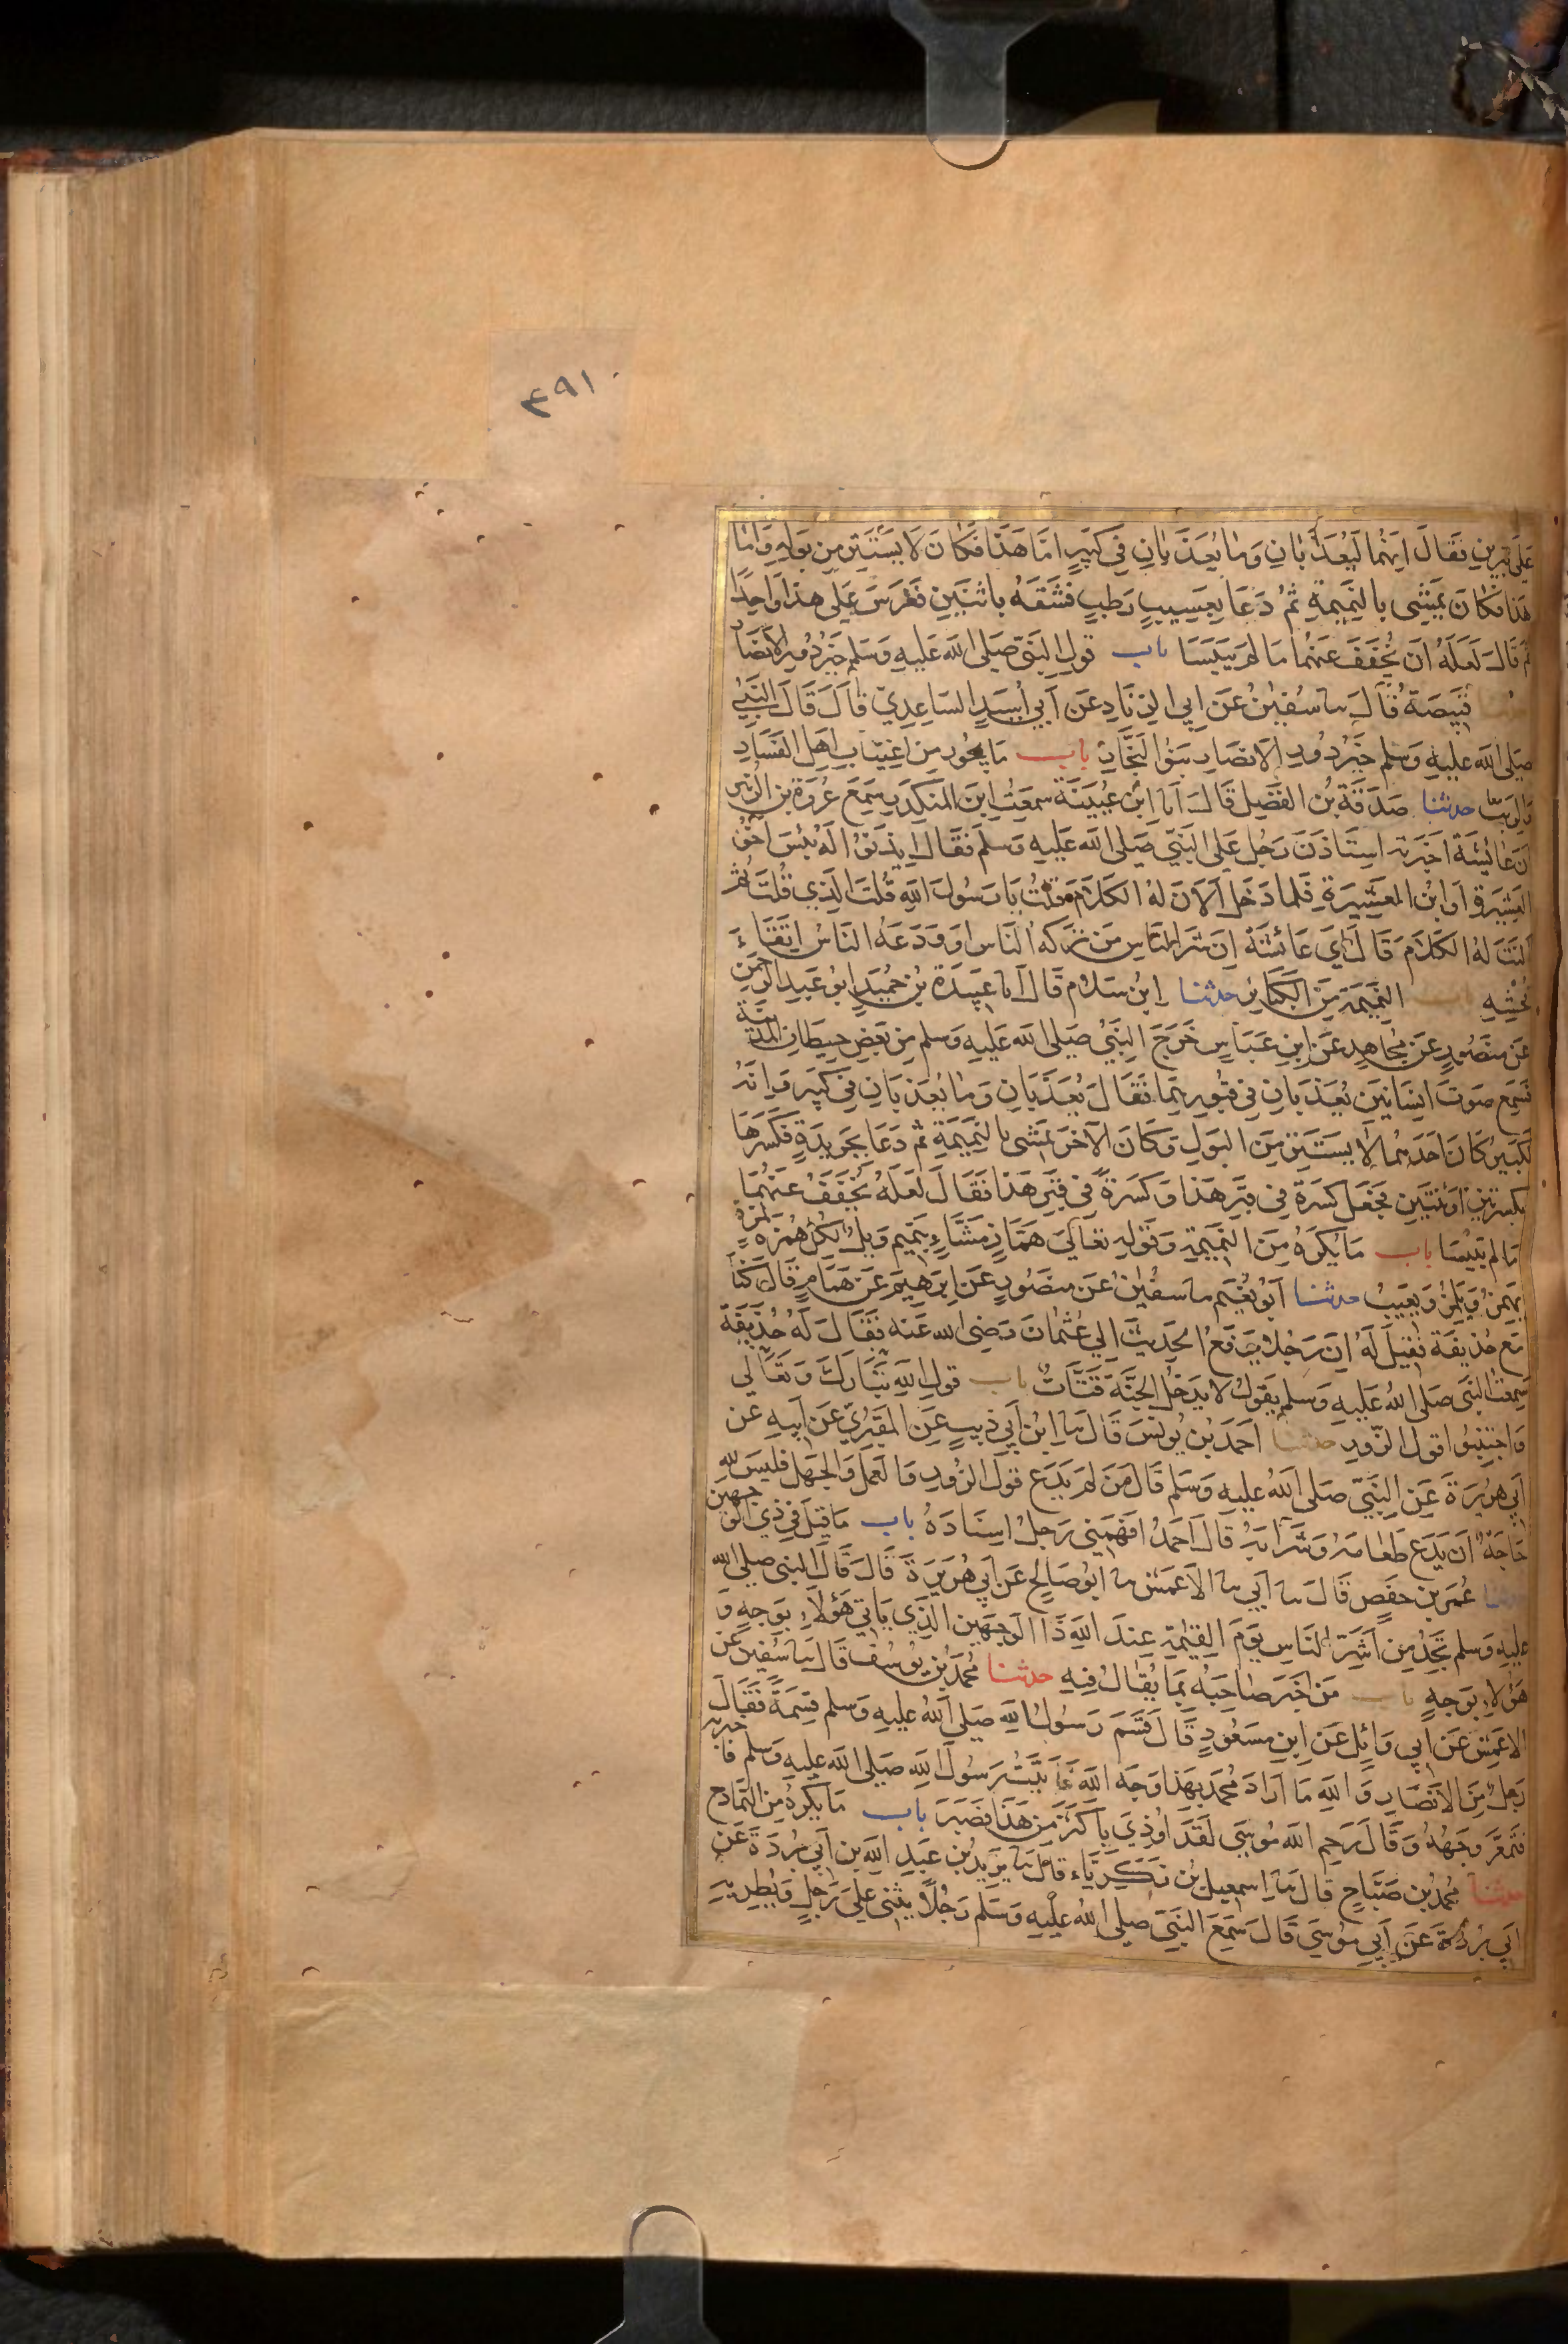 ٣٩١
على قبرين فقال انهما ليعذبان وما يعذبان في كبير اما هذا فكان لا يستتر من بوله واما
هذا فكان يمشي بالنميمة ثم دعا بعسيب رطب فشقه باثنين فغرس على هذا واحدا
ثم قال لعله ان يخفف عنهما ما لم ييبسا باب قول النبي صلى الله عليه وسلم خير دور الانصار
حدثنا قبيصة قال سا سفين عن ابي الزناد عن ابي اسيد الساعدي قال قال النبي
صلى الله عليه وسلم خير دور الانصار بنو النجار باب ما يجوز من اغتياب اهل الفساد
والريب حدثنا صدقة بن الفضل قال انا ابن عيينة سمعت ابن المنكدر سمع عروة بن الزبير
ان عائشة اخبرته استاذن رجل على النبي صلى الله عليه وسلم فقال ايذنوا له بئس اخو
العشيرة او ابن العشيرة فلما دخل الان له الكلام قلت يا رسول الله قلت الذي قلت ثم
النت له الكلام قال اي عائشة ان شر الناس من تركه الناس او ودعه الناس اتقاء
فحشه باب النميمة من الكبائر حدثنا ابن سلام قال انا عبيدة بن حميد ابو عبد الرحمن
عن منصور عن مجاهد عن ابن عباس خرج النبي صلى الله عليه وسلم من بعض حيطان المدينة
فسمع صوت انسانين يعذبان في قبورهما فقال يعذبان وما يعذبان في كبير وانه
لكبير كان احدهما لا يستتر من البول وكان الآخر يمشي بالنميمة ثم دعا بجريدة فكسرها
بكسرتين او ثنتين فجعل كسرة في قبر هذا وكسرة في قبر هذا فقال لعله يخفف عنهما
ما لم ييبسا باب ما يكره من النميمة وقوله تعالى هماز مشاء بنميم ويل لكل همزة لمزة
يهمز ويلمز ويعيب حدثنا ابو نعيم سا سفين عن منصور عن ابرهيم عن همام قال كنا
مع حذيفة فقيل له ان رجلا يرفع الحديث الى عثمان رضي الله عنه فقال له حذيفة
سمعت النبي صلى الله عليه وسلم يقول لا يدخل الجنة قتات باب قول الله تبارك وتعالى
واجتنبوا قول الزور حدثنا احمد بن يونس قال سا ابن ابي ذيب عن المقبري عن ابيه عن
ابي هريرة عن النبي صلى الله عليه وسلم قال من لم يدع قول الزور والعمل والجهل فليس لله
حاجة ان يدع طعامه وشرابه قال احمد افهمني رجل اسناده باب ما قيل في ذي الوجهين
حدثنا عمر بن حفص قال سا ابي سا الاعمش سا ابو صالح عن ابي هريرة قال قال النبي صلى الله
عليه وسلم تجد من اشر الناس يوم القيمة عند الله ذا الوجهين الذي ياتي هؤلاء بوجه و
هؤلاء بوجه باب من اخبر صاحبه بما يقال فيه حدثنا محمد بن يوسف قال سا سفين عن
الاعمش عن ابي وائل عن ابن مسعود قال قسم رسول الله صلى الله عليه وسلم قسمة فقال
رجل من الانصار والله ما اراد محمد بهذا وجه الله فاتيت رسول الله صلى الله عليه وسلم فاخبرته
فتمعر وجهه وقال رحم الله موسى لقد اوذي باكثر من هذا فصبر باب ما يكره من التمادح
حدثنا محمد بن صباح قال سا اسمعيل بن زكرياء قال سا بريد بن عبد الله بن ابي بردة عن
ابي بردة عن ابي موسى قال سمع النبي صلى الله عليه وسلم رجلا يثني على رجل ويطريه